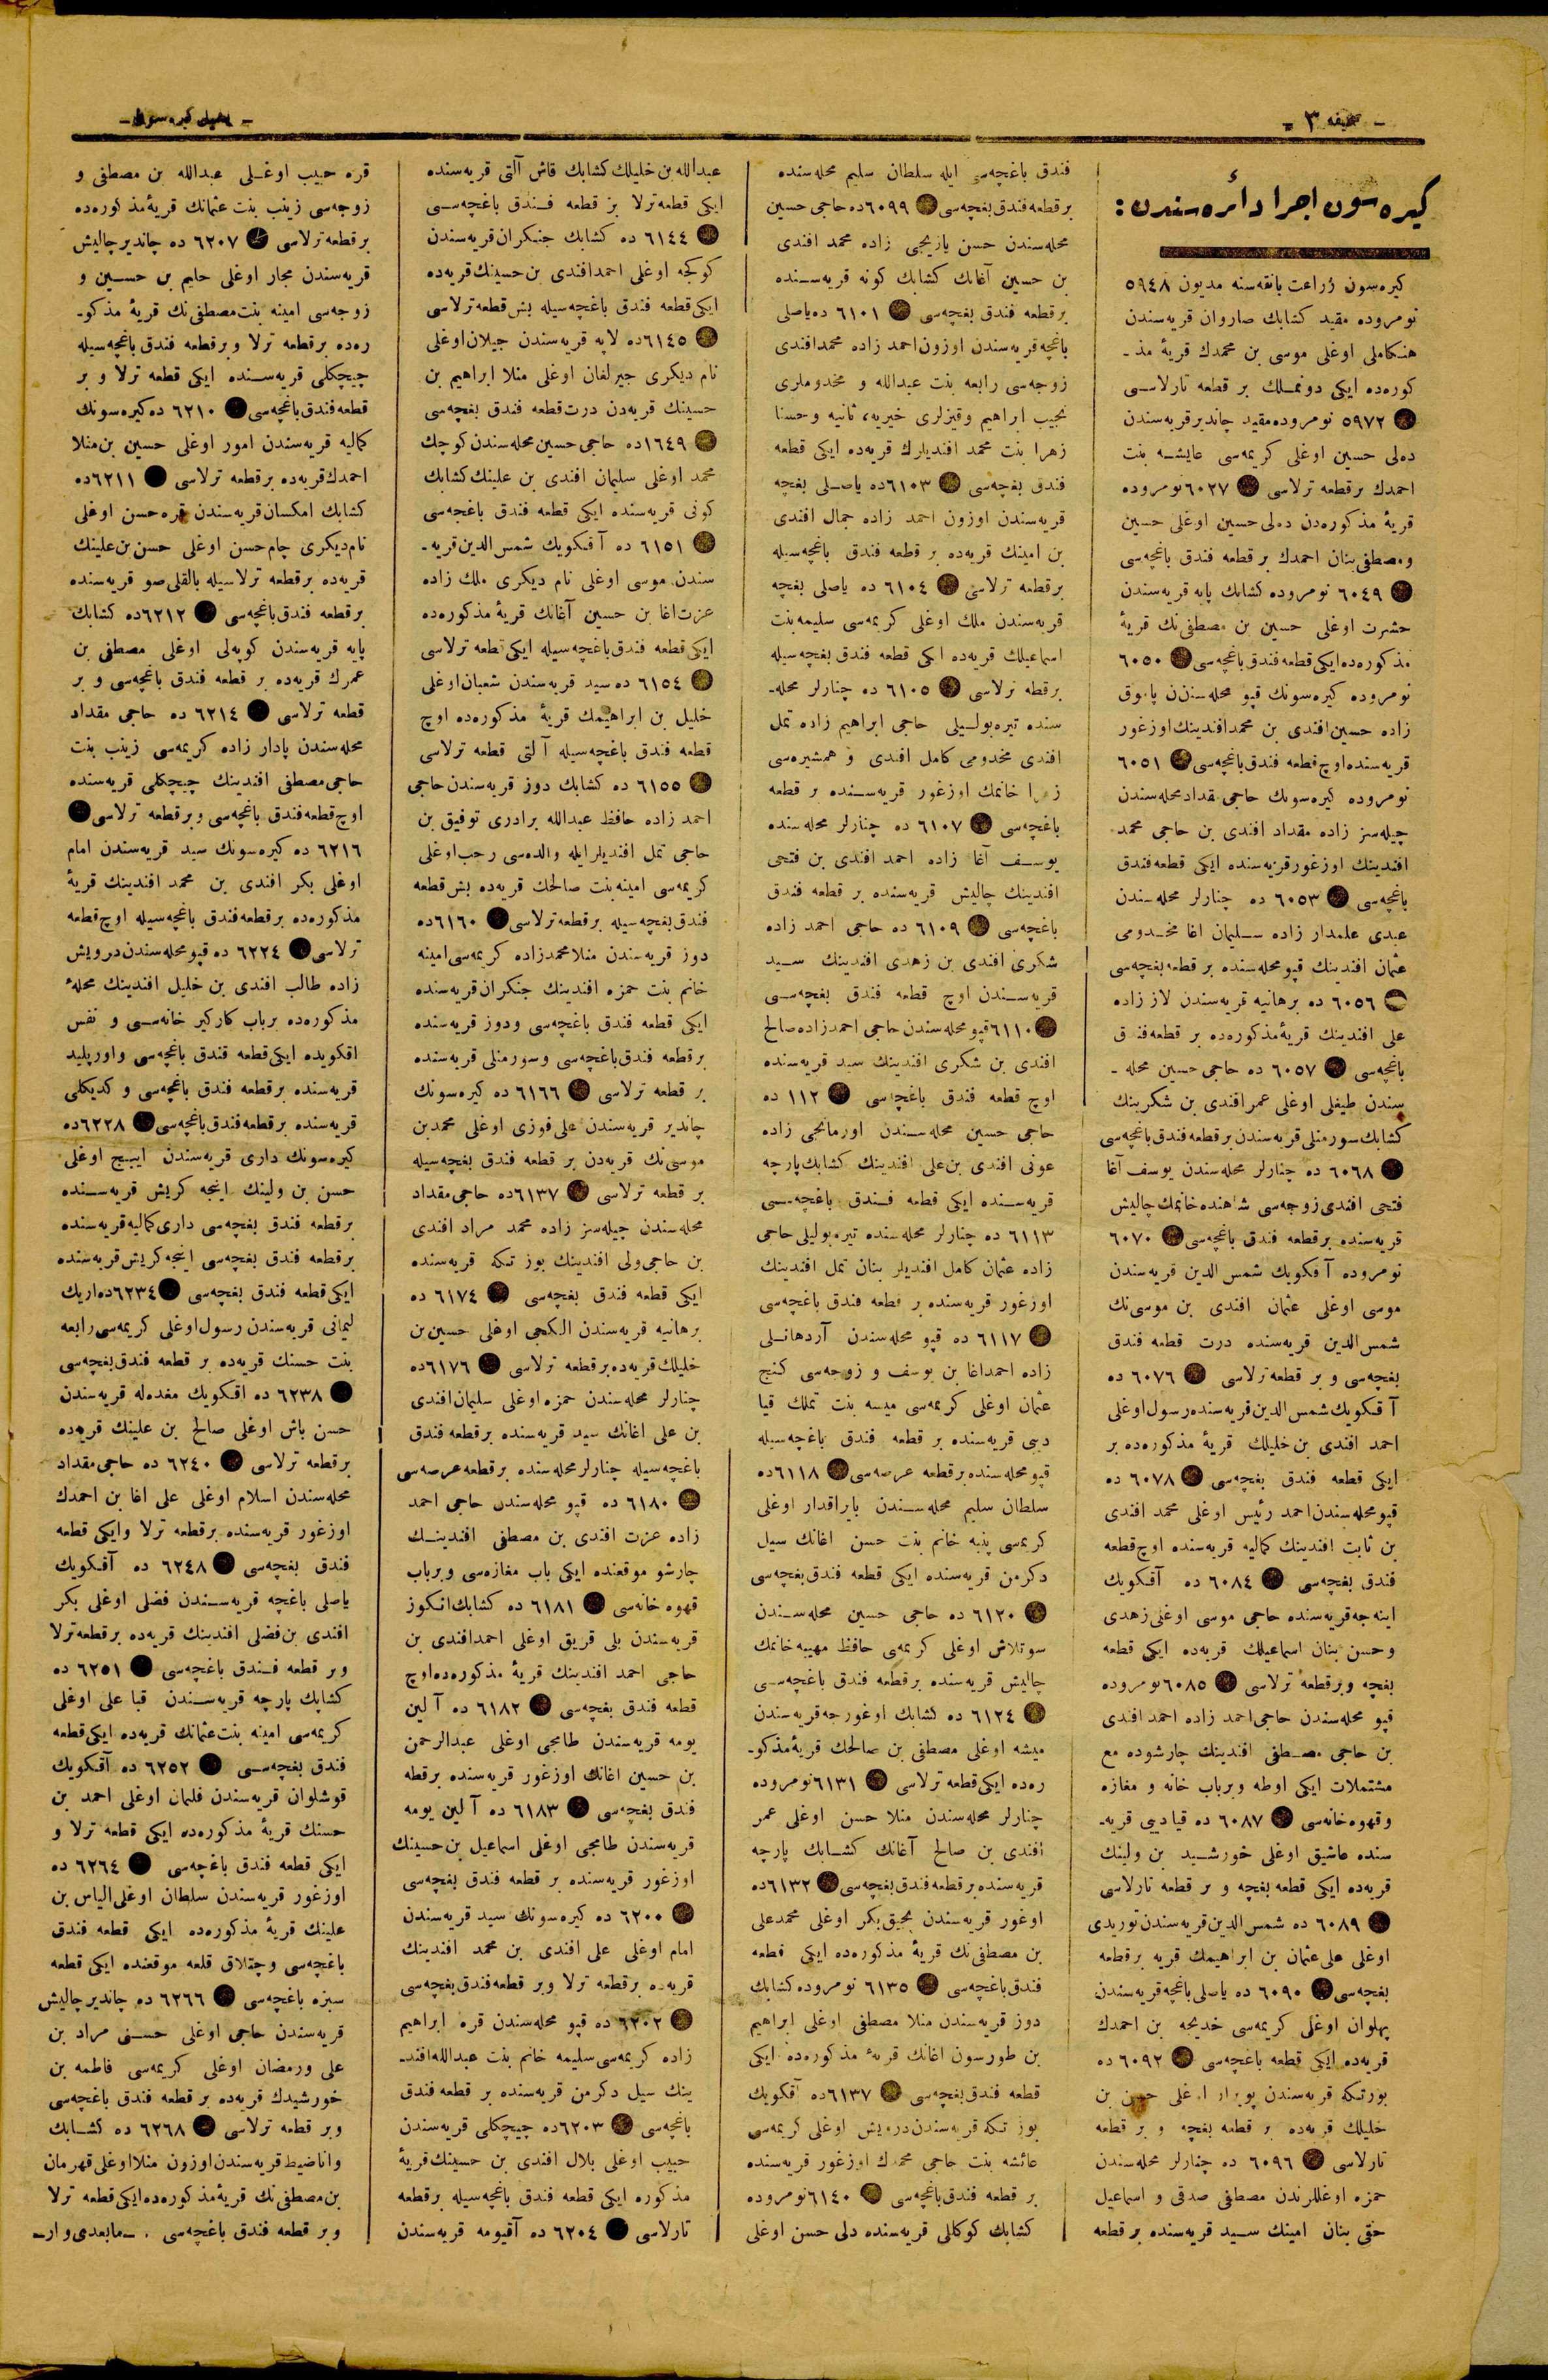 - صحیفه ٣ -
- یشیل کیره سون -
کیره سون اجرا دائره سندن :
کیره سون زراعت بانقه سنه مدیون ٥٩٤٨
نومروده مقید کشابك صاروان قریه سندن
هنکاملی اوغلی موسی بن محمدك قریۀ مذ ـ
کوره ده ایکی دونملك بر قطعه تارلاسی
● ٥٩٧٢ نومروده مقید چاندیر قریه سندن
ده لی حسین اوغلی کریمه سی عایشه بنت
احمدك بر قطعه ترلاسی ● ٦٠٢٧ نومروده
قریۀ مذکوره دن ده لی حسین اوغلی حسین
ومصطفی بنان احمدك بر قطعه فندق باغچه سی
● ٦٠٤٩ نومروده کشابك پایه قریه سندن
حشرت اوغلی حسین بن مصطفی نك قریۀ
مذکوره ده ایکی قطعه فندق باغچه سی ● ٦٠٥٠
نومروده کیره سونك قپو محله سندن
زاده حسین افندی بن محمد افندینك اوزغور
قریه سنده اوچ قطعه فندق باغچه سی ● ٦٠٥١
نومروده کیره سونك حاجی مقداد محله سندن
چیله سز زاده مقداد افندی بن حاجی محمد
افندینك اوزغور قریه سنده ایکی قطعه فندق
باغچه سی ● ٦٠٥٣ ده چنارلر محله سندن
عبدی علمدار زاده سلیمان اغا مخدومی
عثمان افندینك قپو محله سنده بر قطعه بغچه سی
● ٦٠٥٦ ده برهانیه قریه سندن لاز زاده
علی افندینك قریۀ مذکوره ده بر قطعه فندق
باغچه سی ● ٦٠٥٧ ده حاجی حسین محله ـ
سندن طیفلی اوغلی عمر افندی بن شکرینك
کشابك سورمنلی قریه سندن بر قطعه فندق باغچه سی
● ٦٠٦٨ ده چنارلر محله سندن یوسف آغا
فتحی افندی زوجه سی شاهنده خانمك چالیش
قریه سنده بر قطعه فندق باغچه سی ● ٦٠٧٠
نومروده آقکویك شمس الدین قریه سندن
موسی اوغلی عثمان افندی بن موسی نك
شمس الدین قریه سنده درت قطعه فندق
بغچه سی و بر قطعه ترلاسی ● ٦٠٧٦ ده
آقکویك شمس الدین قریه سنده رسول اوغلی
احمد افندی بن خلیلك قریۀ مذکوره ده بر
ایکی قطعه فندق بغچه سی ● ٦٠٧٨ ده
قپو محله سندن احمد رئیس اوغلی محمد افندی
بن ثابت افندینك کمالیه قریه سنده اوچ قطعه
فندق بغچه سی ● ٦٠٨٤ ده آقکویك
اینه جه قریه سنده حاجی موسی اوغلی زهدی
وحسن بنان اسماعیلك قریه ده ایکی قطعه
بغچه وبر قطعه ترلاسی ● ٦٠٨٥ نومروده
قپو محله سندن حاجی احمد زاده احمد افندی
بن حاجی مصطفی افندینك چارشوده مع
مشتملات ایکی اوطه وبرباب خانه و مغازه
وقهوه خانه سی ● ٦٠٨٧ ده قیا دیبی قریه ـ
سنده عاشیق اوغلی خورشید بن ولینك
قریه ده ایکی قطعه بغچه و بر قطعه تارلاسی
● ٦٠٨٩ ده شمس الدین قریه سندن توریدی
اوغلی علی عثمان بن ابراهیمك قریه بر قطعه
بغچه سی ● ٦٠٩٠ ده یاصلی باغچه قریه سندن
پهلوان اوغلی کریمه سی خدیجه بن احمدك
قریه ده ایکی قطعه باغچه سی ● ٦٠٩٢ ده
بورتمکه قریه سندن اوغلی حسن بن
خلیلك قریه ده بر قطعه بغچه و بر قطعه
تارلاسی ● ٦٠٩٦ ده چنارلر محله سندن
حمزه اوغللرندن مصطفی صدقی و اسماعیل
حقی بنان امینك سید قریه سنده بر قطعه
فندق باغچه سی ایله سلطان سلیم محله سنده
بر قطعه فندق بغچه سی ● ٦٠٩٩ ده حاجی حسین
محله سندن حسن یازیجی زاده محمد افندی
بن حسین آغانك کشابك کونه قریه سنده
بر قطعه فندق بغچه سی ● ٦١٠١ ده یاصلی
باغچه قریه سندن اوزون احمد زاده محمد افندی
زوجه سی رابعه بنت عبدالله و مخدوملری
نجیب ابراهیم وقیزلری خیریه، ثانیه وحسنا
زهرا بنت محمد افندیلرك قریه ده ایکی قطعه
فندق بغچه سی ● ٦١٠٣ ده یاصلی بغچه
قریه سندن اوزون احمد زاده جمال افندی
بن امینك قریه ده بر قطعه فندق باغچه سیله
بر قطعه ترلاسی ● ٦١٠٤ ده یاصلی بغچه
قریه سندن ملك اوغلی کریمه سی سلیمه بنت
اسماعیلك قریه ده ایکی قطعه فندق بغچه سیله
بر قطعه ترلاسی ● ٦١٠٥ ده چنارلر محله ـ
سنده تیره بولیلی حاجی ابراهیم زاده تمل
افندی مخدومی کامل افندی و همشیره سی
زهرا خانمك اوزغور قریه سنده بر قطعه
باغچه سی ● ٦١٠٧ ده چنارلر محله سنده
یوسف آغا زاده احمد افندی بن فتحی
افندینك چالیش قریه سنده بر قطعه فندق
باغچه سی ● ٦١٠٩ ده حاجی احمد زاده
شکری افندی بن زهدی افندینك سید
قریه سندن اوچ قطعه فندق بغچه سی
● ٦١١٠ قپو محله سندن حاجی احمد زاده صالح
افندی بن شکری افندینك سید قریه سنده
اوچ قطعه فندق باغچه سی ● ١١٢ ده
حاجی حسین محله سندن اورمانجی زاده
عونی افندی بن علی افندینك کشابك پارچه
قریه سنده ایکی قطعه فندق باغچه سی
٦١١٣ ده چنارلر محله سنده تیره بولیلی حاجی
زاده عثمان کامل افندیلر بنان تمل افندینك
اوزغور قریه سنده بر قطعه فندق باغچه سی
● ٦١١٧ ده قپو محله سندن آردهانلی
زاده احمد اغا بن یوسف و زوجه سی کنج
عثمان اوغلی کریمه سی میسه بنت تملك قیا
دیبی قریه سنده بر قطعه فندق باغچه سیله
قپو محله سنده بر قطعه عرصه سی ● ٦١١٨ ده
سلطان سلیم محله سندن بایراقدار اوغلی
کریمه سی پنبه خانم بنت حسن اغانك سیل
دکرمن قریه سنده ایکی قطعه فندق بغچه سی
● ٦١٢٠ ده حاجی حسین محله سندن
سوتلاش اوغلی کریمه سی حافظ مهیبه خانمك
چالیش قریه سنده بر قطعه فندق باغچه سی
● ٦١٢٤ ده کشابك اوغورجه قریه سندن
میشه اوغلی مصطفی بن صالحك قریۀ مذکو ـ
ره ده ایکی قطعه ترلاسی ● ٦١٣١ نومروده
چنارلر محله سندن منلا حسن اوغلی عمر
افندی بن صالح آغانك کشابك پارچه
قریه سنده بر قطعه فندق بغچه سی ● ٦١٣٢ ده
اوغور قریه سندن بکر اوغلی محمد علی
بن مصطفی نك قریۀ مذکوره ده ایکی قطعه
فندق باغچه سی ● ٦١٣٥ نومروده کشابك
دوز قریه سندن منلا مصطفی اوغلی ابراهیم
بن طورسون اغانك قریۀ مذکوره ده ایکی
قطعه فندق بغچه سی ● ٦١٣٧ ده آقکویك
بوز تمکه قریه سندن درویش اوغلی کریمه سی
عائشه بنت حاجی محمدك اوزغور قریه سنده
بر قطعه فندق باغچه سی ● ٦١٤٠ نومروده
کشابك کوکاللی قریه سنده دلی حسن اوغلی
عبدالله بن خلیلك کشابك قاش آلتی قریه سنده
ایکی قطعه ترلا بر قطعه فندق باغچه سی
● ٦١٤٤ ده کشابك جنکران قریه سندن
کوکجه اوغلی احمد افندی بن حسینك قریه ده
ایکی قطعه فندق باغچه سیله بش قطعه ترلاسی
● ٦١٤٥ ده لاپه قریه سندن جیلان اوغلی
نام دیکری جیرلغان اوغلی منلا ابراهیم بن
حسینك قریه دن درت قطعه فندق بغچه سی
● ١٦٤٩ ده حاجی حسین محله سندن کوچك
محمد اوغلی سلیمان افندی بن علینك کشابك
کونی قریه سنده ایکی قطعه فندق باغچه سی
● ٦١٥١ ده آقکویك شمس الدین قریه ـ
سندن موسی اوغلی نام دیکری ملك زاده
عزت اغا بن حسین آغانك قریۀ مذکوره ده
ایکی قطعه فندق باغچه سیله ایکی قطعه ترلاسی
● ٦١٥٤ ده سید قریه سندن شعبان اوغلی
خلیل بن ابراهیمك قریۀ مذکوره ده اوچ
قطعه فندق باغچه سیله آلتی قطعه ترلاسی
● ٦١٥٥ ده کشابك دوز قریه سندن حاجی
احمد زاده حافظ عبدالله برادری توفیق بن
حاجی تمل افندیلر ایله والده سی رجب اوغلی
کریمه سی امینه بنت صالحك قریه ده بش قطعه
فندق بغچه سیله بر قطعه ترلاسی ● ٦١٦٠ ده
دوز قریه سندن منلا محمد زاده کریمه سی امینه
خانم بنت حمزه افندینك جنکران قریه سنده
ایکی قطعه فندق باغچه سی ودوز قریه سنده
بر قطعه فندق باغچه سی وسورمنلی قریه سنده
بر قطعه ترلاسی ● ٦١٦٦ ده کیره سونك
چاندیر قریه سندن علی فوزی اوغلی محمد بن
موسی نك قریه دن بر قطعه فندق بغچه سیله
بر قطعه ترلاسی ● ٦١٣٧ ده حاجی مقداد
محله سندن چیله سز زاده محمد مراد افندی
بن حاجی ولی افندینك بوز تمکه قریه سنده
ایکی قطعه فندق بغچه سی ● ٦١٧٤ ده
برهانیه قریه سندن الکجی اوغلی حسین بن
خلیلك قریه ده بر قطعه ترلاسی ● ٦١٧٦ ده
چنارلر محله سندن حمزه اوغلی سلیمان افندی
بن علی اغانك سید قریه سنده بر قطعه فندق
باغچه سیله چنارلر محله سنده بر قطعه عرصه سی
● ٦١٨٠ ده قپو محله سندن حاجی احمد
زاده عزت افندی بن مصطفی افندینك
چارشو موقعنده ایکی باب مغازه سی وبرباب
قهوه خانه سی ● ٦١٨١ ده کشابك انکوز
قریه سندن بلی قریق اوغلی احمد افندی بن
حاجی احمد افندینك قریۀ مذکوره ده اوچ
قطعه فندق بغچه سی ● ٦١٨٢ ده آلین
یومه قریه سندن طامجی اوغلی عبدالرحمن
بن حسین اغانك اوزغور قریه سنده بر قطعه
فندق بغچه سی ● ٦١٨٣ ده آلین یومه
قریه سندن طامجی اوغلی اسماعیل بن حسینك
اوزغور قریه سنده بر قطعه فندق بغچه سی
● ٦٢٠٠ ده کیره سونك سید قریه سندن
امام اوغلی علی افندی بن محمد افندینك
قریه ده بر قطعه ترلا وبر قطعه فندق بغچه سی
● ٦٢٠٢ ده قپو محله سندن قره ابراهیم
زاده کریمه سی سلیمه خانم بنت عبدالله افند ـ
ینك سیل دکرمن قریه سنده بر قطعه فندق
باغچه سی ● ٦٢٠٣ ده چیچکلی قریه سندن
حبیب اوغلی بلال افندی بن حسینك قریۀ
مذکوره ایکی قطعه فندق باغچه سیله بر قطعه
تارلاسی ● ٦٢٠٤ ده آقیومه قریه سندن
قره حبیب اوغلی عبدالله بن مصطفی و
زوجه سی زینب بنت عثمانك قریۀ مذکوره ده
بر قطعه ترلاسی ● ٦٢٠٧ ده چاندیر چالیش
قریه سندن مجار اوغلی حلیم بن حسین و
زوجه سی امینه بنت مصطفی نك قریۀ مذکو ـ
ره ده بر قطعه ترلا وبر قطعه فندق باغچه سیله
چیچکلی قریه سنده ایکی قطعه ترلا و بر
قطعه فندق باغچه سی ● ٦٢١٠ ده کیره سونك
کمالیه قریه سندن امور اوغلی حسین بن منلا
احمدك قریه ده بر قطعه ترلاسی ● ٦٢١١ ده
کشابك امکسان قریه سندن قره حسن اوغلی
نام دیکری چام حسن اوغلی حسن بن علینك
قریه ده بر قطعه ترلاسیله بالقلی صو قریه سنده
بر قطعه فندق باغچه سی ● ٦٢١٢ ده کشابك
پایه قریه سندن کوپه لی اوغلی مصطفی بن
عمرك قریه ده بر قطعه فندق باغچه سی و بر
قطعه ترلاسی ● ٦٢١٤ ده حاجی مقداد
محله سندن پادار زاده کریمه سی زینب بنت
حاجی مصطفی افندینك چیچکلی قریه سنده
اوچ قطعه فندق باغچه سی وبر قطعه ترلاسی ●
٦٢١٦ ده کیره سونك سید قریه سندن امام
اوغلی بکر افندی بن محمد افندینك قریۀ
مذکوره ده بر قطعه فندق باغچه سیله اوچ قطعه
ترلاسی ● ٦٢٢٤ ده قپو محله سندن درویش
زاده طالب افندی بن خلیل افندینك محلۀ
مذکوره ده برباب کارکیر خانه سی و نفس
اقکویده ایکی قطعه فندق باغچه سی واورپلید
قریه سنده بر قطعه فندق باغچه سی و کدیکلی
قریه سنده بر قطعه فندق باغچه سی ● ٦٢٢٨ ده
کیره سونك داری قریه سندن ایبیج اوغلی
حسن بن ولینك اینجه کریش قریه سنده
بر قطعه فندق بغچه سی داری کمالیه قریه سنده
بر قطعه فندق بغچه سی اینجه کریش قریه سنده
ایکی قطعه فندق بغچه سی ● ٦٢٣٤ ده اریك
لیمانی قریه سندن رسول اوغلی کریمه سی رابعه
بنت حسنك قریه ده بر قطعه فندق بغچه سی
● ٦٢٣٨ ده اقکویك مغده له قریه سندن
حسن باش اوغلی صالح بن علینك قریه ده
بر قطعه ترلاسی ● ٦٢٤٠ ده حاجی مقداد
محله سندن اسلام اوغلی علی اغا بن احمدك
اوزغور قریه سنده بر قطعه ترلا وایکی قطعه
فندق بغچه سی ● ٦٢٤٨ ده آقکویك
یاصلی باغچه قریه سندن فضلی اوغلی بکر
افندی بن فضلی افندینك قریه ده بر قطعه ترلا
وبر قطعه فندق باغچه سی ● ٦٢٥١ ده
کشابك پارچه قریه سندن قبا علی اوغلی
کریمه سی امینه بنت عثمانك قریه ده ایکی قطعه
فندق بغچه سی ● ٦٢٥٢ ده آقکویك
قوشلوان قریه سندن قلمان اوغلی احمد بن
حسنك قریۀ مذکوره ده ایکی قطعه ترلا و
ایکی قطعه فندق باغچه سی ● ٦٢٦٤ ده
اوزغور قریه سندن سلطان اوغلی الیاس بن
علینك قریۀ مذکوره ده ایکی قطعه فندق
باغچه سی وچتلاق قلعه موقعنده ایکی قطعه
سبزه باغچه سی ● ٦٢٦٦ ده چاندیر چالیش
قریه سندن حاجی اوغلی حسنی مراد بن
علی ورمضان اوغلی کریمه سی فاطمه بن
خورشیدك قریه ده بر قطعه فندق باغچه سی
وبر قطعه ترلاسی ● ٦٢٦٨ ده کشابك
واناضیط قریه سندن اوزون منلا اوغلی قهرمان
بن مصطفی نك قریۀ مذکوره ده ایکی قطعه ترلا
وبر قطعه فندق باغچه سی . ـ مابعدی وار ـ